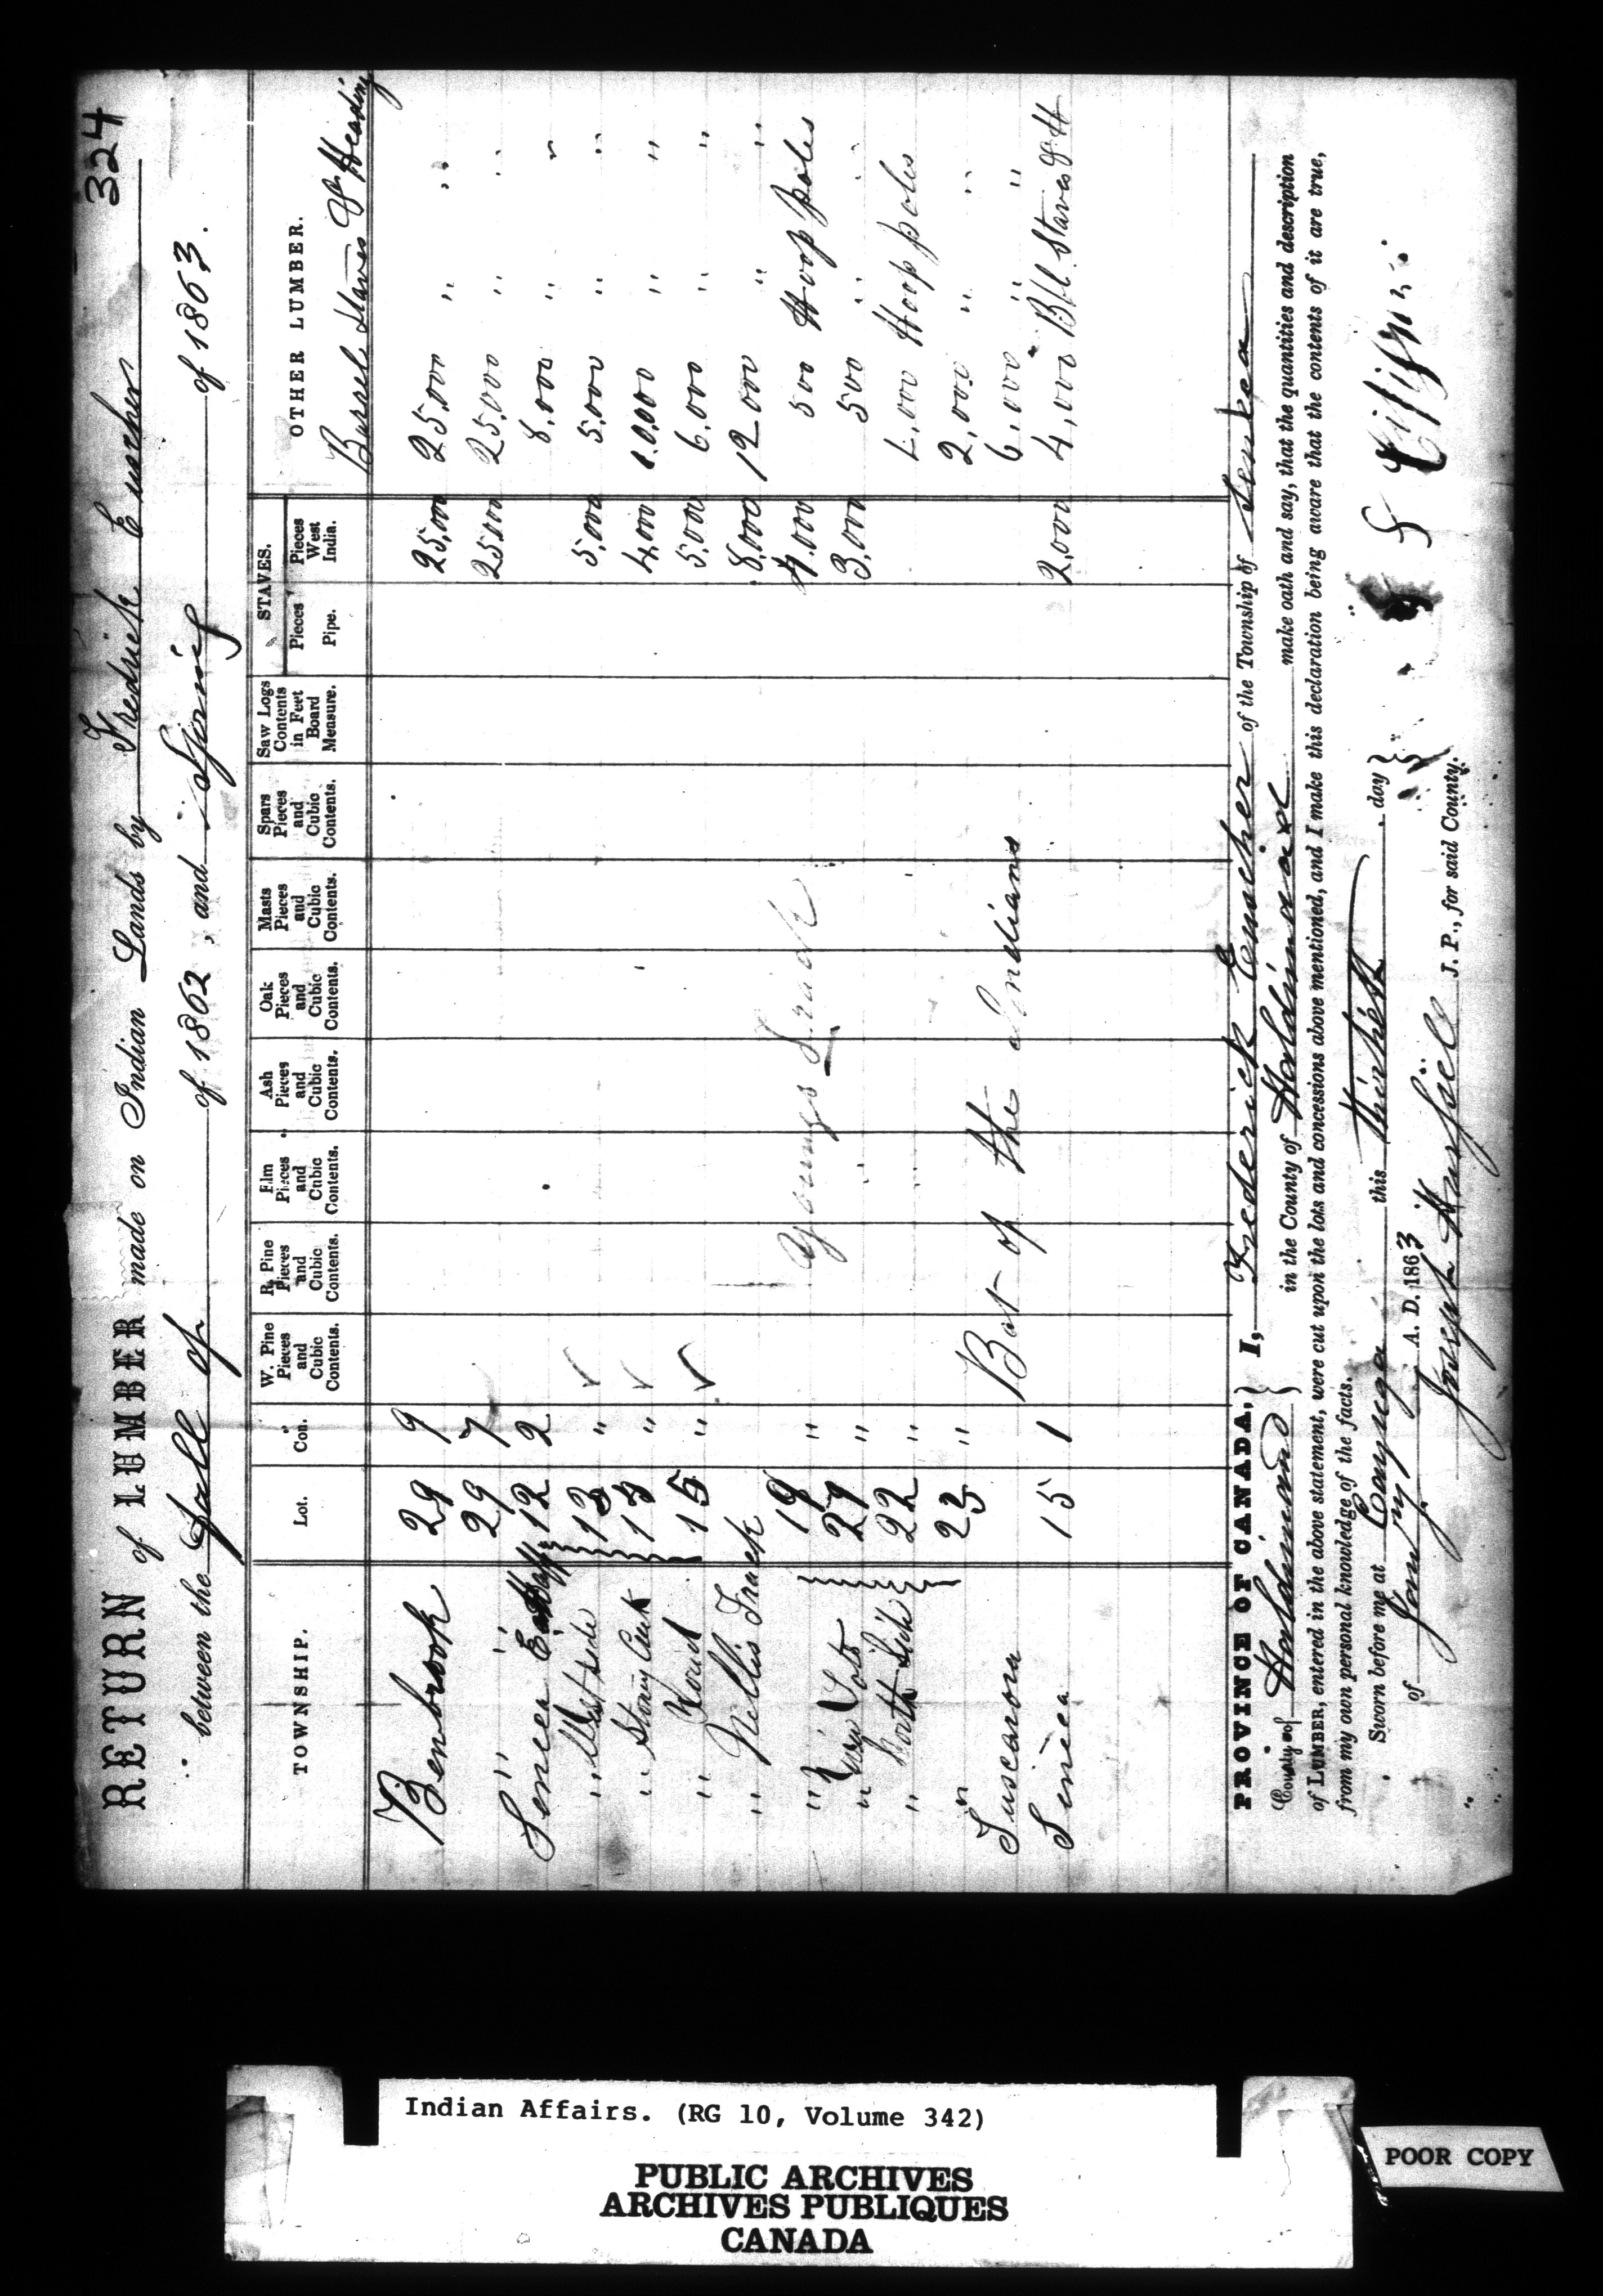 324
RETURN of LUMBER made on Indian Lands by Fredrick Euscher
between the fall of of 1862, and Spring of 1863.
TOWNSHIP. Lot. Con. W. Pine Pieces and Cubic Contents. R. Pine Pieces and Cubic Contents. Elm Pieces and Cubic Contents. Ash Pieces and Cubic Contents. Oak Pieces and Cubic Contents. Masts Pieces and Cubic Contents. Spars Pieces and Cubic Contents. Saw Logs Contents in Feet Board Measure. STAVES. Pieces Pipe. Pieces West India. OTHER LUMBER.
Barael Staves & Heading
Benbrook 29 9 25,000 25,000 " "
" " 29 7 25000 25,000 " "
Seneca 12 2 8,000 " "
" West side 13 " 5,000 5,000 " "
" Stony Creek 13 " 4,000 10,000 " "
" Road 15 " 5,000 6,000 " "
" Nellis Track 8,000 12000 " "
" 19 " Youngs Track 4,000 500 Hoop poles
" 29 " 3,000 500 " "
" North Side 22 " 1,000 Hoop poles
" 23 " 2,000 " "
Tuscarora Bot of the Indians 6,000 " "
Sinica 15 1 2,000 4,000 Bbl. Staves & H
PROVINCE OF CANADA, } I, Frederick Euscher of the Township of Seneca
County of Haldimand } in the County of Haldimand make oath and say, that the quantities and description
of LUMBER, entered in the above statement, were cut upon the lots and concessions above mentioned, and I make this declaration being aware that the contents of it are true,
from my own personal knowledge of the facts.
Sworn before me at Cayuga this thirtieth day }
of A. D. 1863
Joseph J. P., for said County.
Indian Affairs. (RG 10, Volume 342)
PUBLIC ARCHIVES
ARCHIVES PUBLIQUES
CANADA
POOR COPY